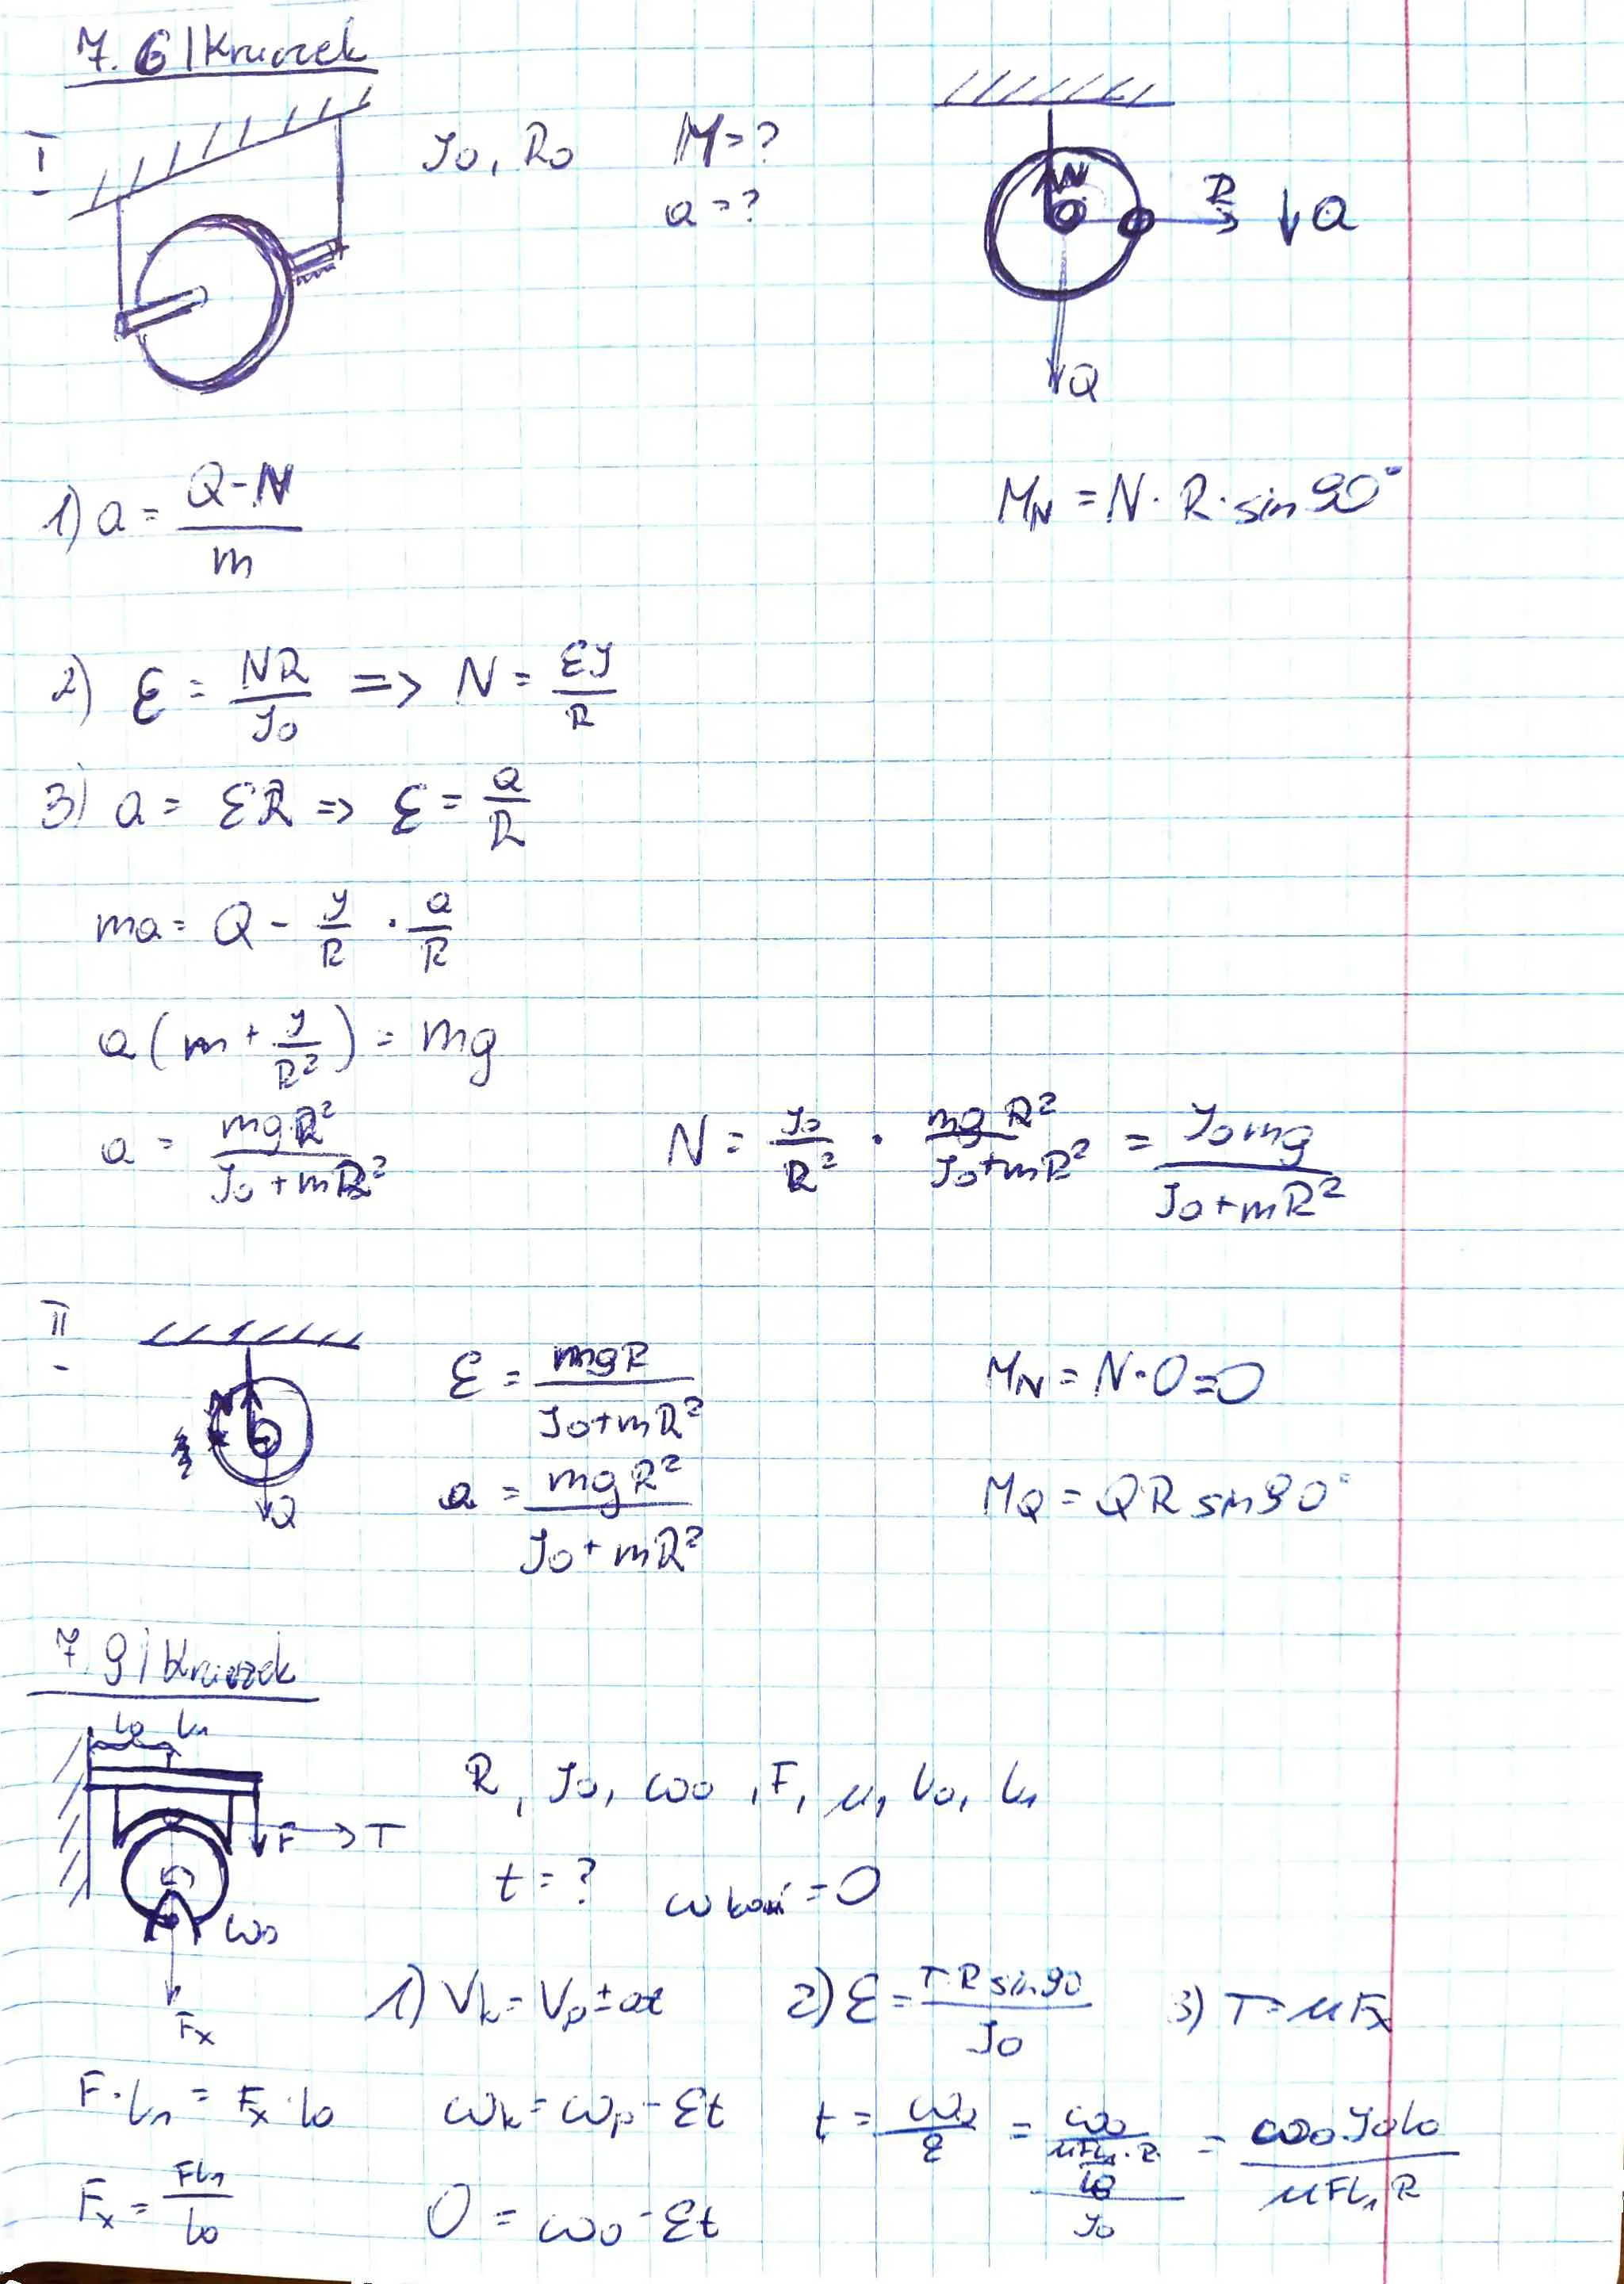 7.6 | Kruczek
I
J₀, R₀ M=?
a=?
N
R ↓a
Q
1) a = (Q-N)/m
M_N = N·R·sin90°
2) ε = NR/J₀ => N = εJ/R
3) a = εR => ε = a/R
ma = Q - J/R · a/R
a(m + J/R²) = mg
a = mgR²/(J₀+mR²)
N = J₀/R² · mgR²/(J₀+mR²) = J₀mg/(J₀+mR²)
II
N
Q
ε = mgR/(J₀+mR²)
M_N = N·0=0
a = mgR²/(J₀+mR²)
M_Q = QR sin90°
7.9 | Kruczek
l₀ l₁
R, J₀, ω₀, F, μ, l₀, l₁
F → T
t=? ω końc = 0
ω₀
F_x
1) V_k = V_p ± at 2) ε = TR sin90/J₀ 3) T = μF_x
F·l₁ = F_x·l₀ ω_k = ω_p - εt t = ω₀/ε = ω₀/((μFl₁·R/l₀)/J₀) = ω₀J₀l₀/(μFl₁R)
F_x = Fl₁/l₀ 0 = ω₀ - εt